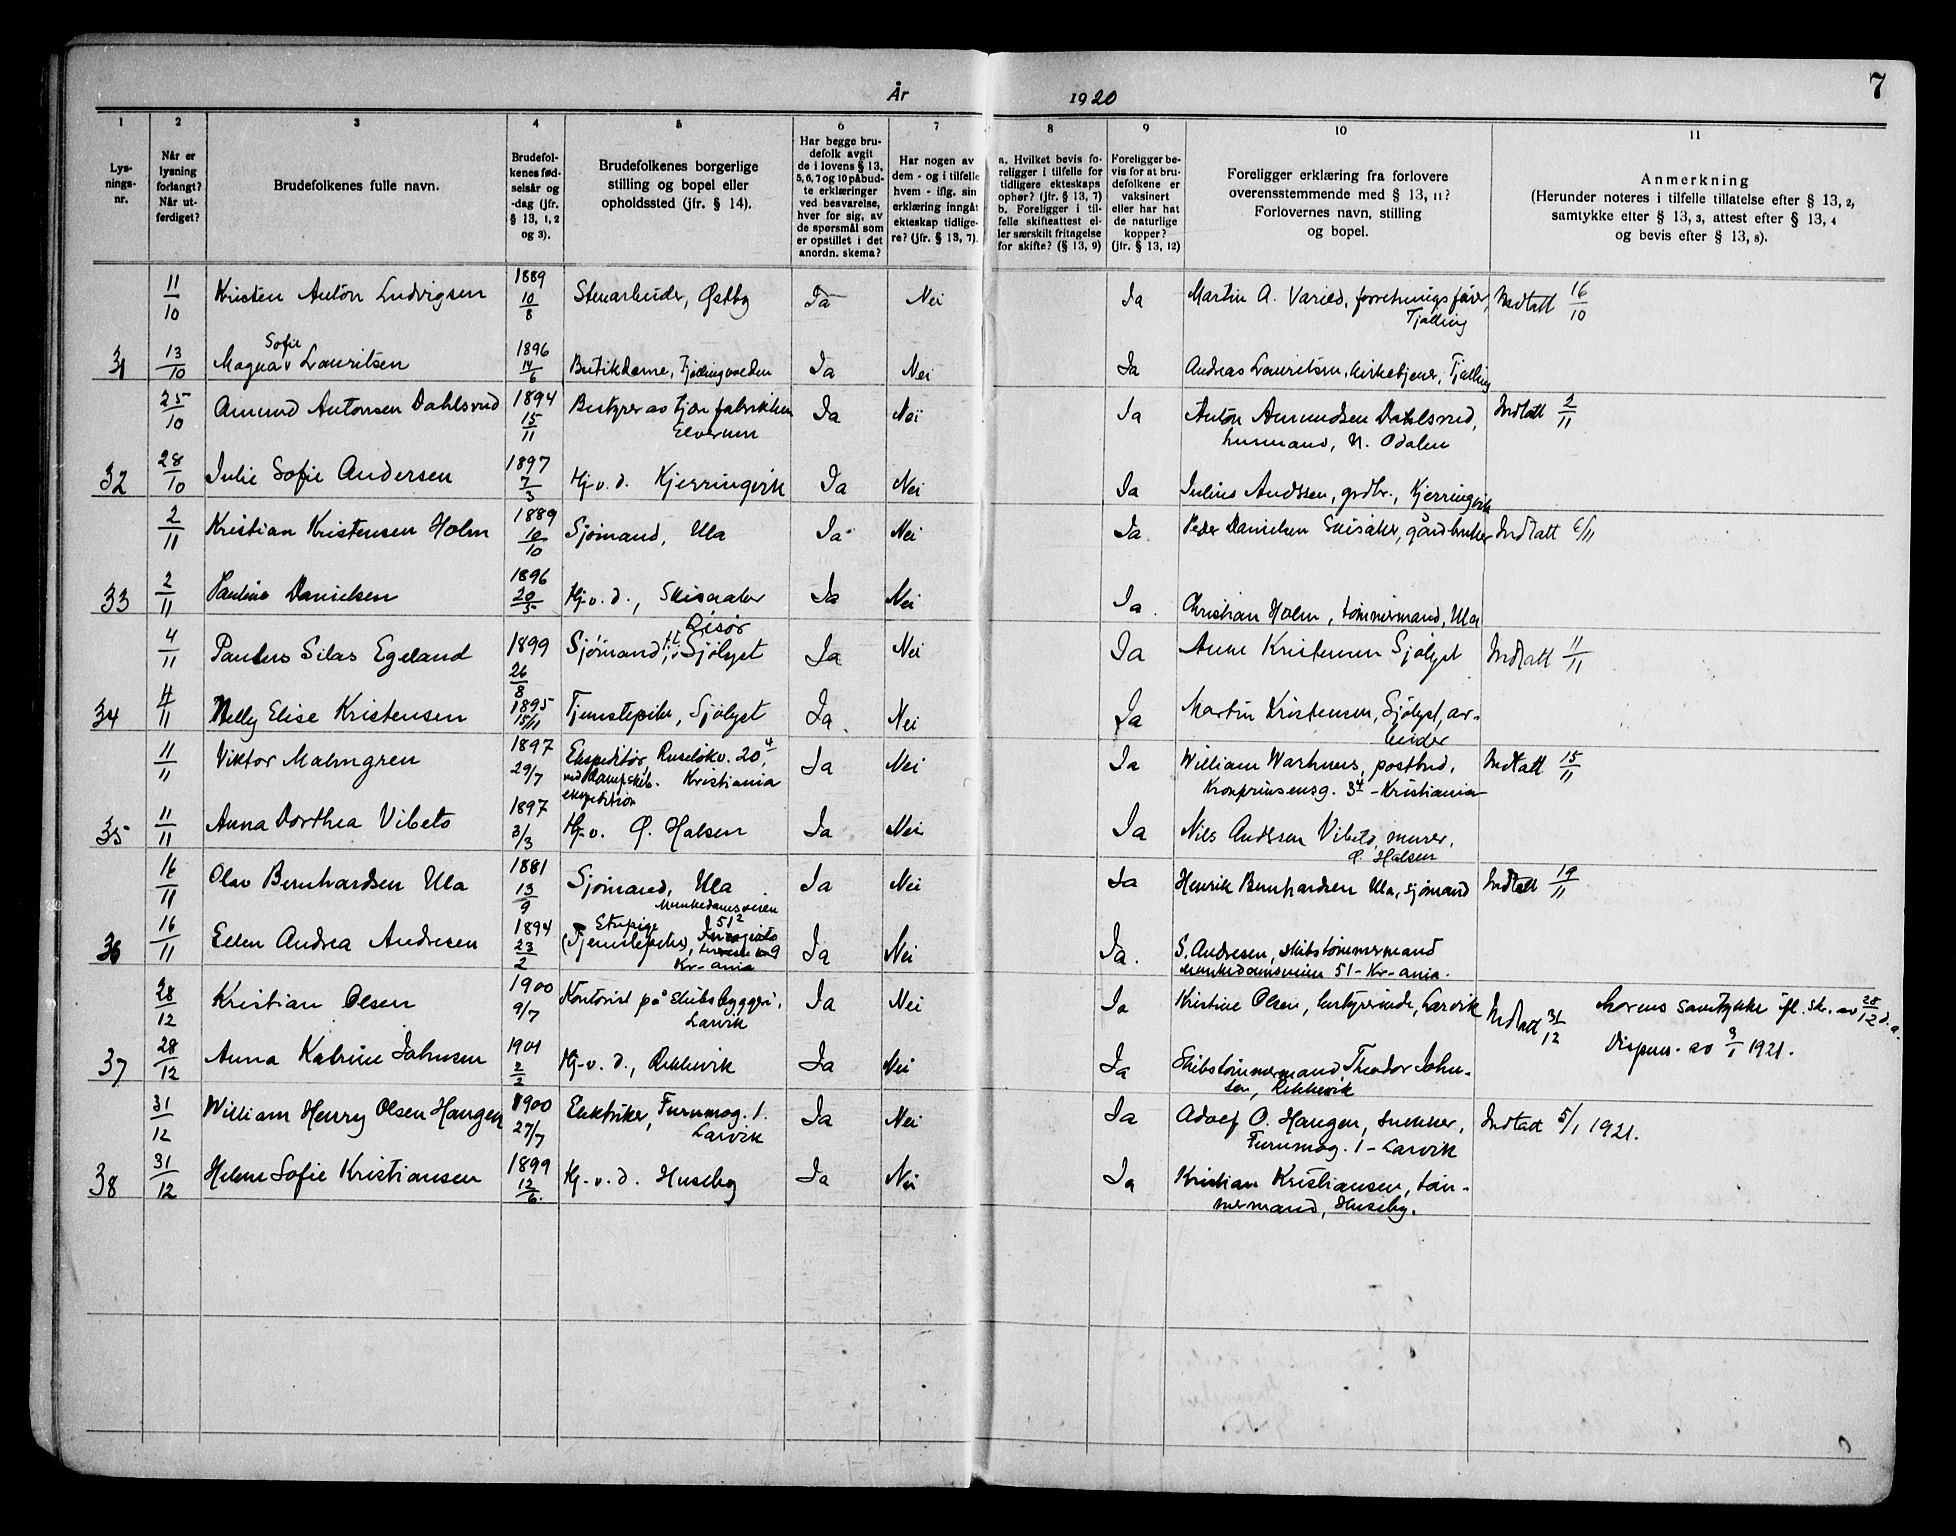 År 1920
7
1 2 3 4 5 6 7 8 9 10 11
Lys-
nings-
nr.
Når er
lysning
forlangt?
Når ut-
ferdiget?
Brudefolkenes fulle navn.
Brudefol-
kenes fød-
selsår og
-dag (jfr.
§ 13, 1, 2
og 3).
Brudefolkenes borgerlige
stilling og bopel eller
opholdssted (jfr. § 14).
Har begge bru-
defolk avgit
de i lovens § 13,
5, 6, 7 og 10 påbud-
te erklæringer
ved besvarelse,
hver for sig, av
de spørsmål som
er opstillet i det
anordn. skema?
Har nogen av
dem - og i tilfelle
hvem - iflg. sin
erklæring inngåt
ekteskap tidlige-
re? (jfr. § 13, 7).
a. Hvilket bevis fo-
religger i tilfelle for
tidligere ekteskaps
ophør? (jfr. § 13, 7)
b. Foreligger i til-
felle skifteattest el-
ler særskilt fritagelse
for skifte? (§ 13, 9)
Foreligger be-
vis for at bru-
defolkene er
vaksinert
eller har hat
de naturlige
kopper?
(jfr. § 13, 12)
Foreligger erklæring fra forlovere
overensstemmende med § 13, 11?
Forlovernes navn, stilling
og bopel.
Anmerkning
(Herunder noteres i tilfelle tillatelse efter § 13, 2,
samtykke efter § 13, 3, attest efter § 13, 4
og bevis efter § 13, 8).
11/10 Kristen Anton Ludvigsen 1889 10/8 Stenarbeider, Østby Ja Nei Ja Martin A. Varild, forretningsfører, Indtatt 16/10
Tjølling
Sofie
31 13/10 Magna v Lauritsen 1896 14/6 Butikdame, Ja Nei Ja Andreas Lauritsen, kirketjener, Tjølling
25/10 Amund Antonsen Dahlsrud 1894 15/11 Bestyrer av tjærefabrikken Ja Nei Ja Anton Amundsen Dahlsrud, Indtatt 2/11
Elverum
N. Odalen
32 28/10 Julie Sofie Andersen 1897 7/3 Hj. v. d. Kjerringvik Ja Nei Ja Julius Andssen, grdbr., Kjerringvik
2/11 Kristian Kristensen Holm 1889 10/10 Sjømand, Ula Ja Nei Ja Peder Danielsen Skisåker, gårdbruker Indtatt 6/11
33 2/11 Pauline Danielsen 1896 20/5 Hj. v. d., Skisaaker Ja Nei Ja Christian Holm, tømmermand, Ula
Risør
4/11 Silas Egeland 1899 26/8 Sjømand, Sjølyst Ja Nei Ja Anne Kristensen Sjølyst Indtatt 11/11
34 4/11 Nelly Elise Kristensen 1895 15/11 Tjenestepike, Sjølyst Ja Nei Ja Martin Kristensen, Sjølyst, ar-
beider
11/11 Viktor Malmgren 1897 29/7 Ekspeditør, Ruseløkv. 20 4, Ja Nei Ja William Warhuus, postbud, Indtatt 15/11
ved Dampskib- Kristiania Kronprinsensg. 3 4 - Kristiania
ekspedition
35 11/11 Anna Dorthea Vibeto 1897 3/3 Hj. v. Ø. Halsen Ja Nei Ja Nils Andssen Vibeto, murer,
Ø. Halsen
16/11 Olav Bernhardsen Ula 1881 13/9 Sjømand, Ula Ja Nei Ja Henrik Bernhardsen Ula, sjømand Indtatt 19/11
Munkedamsveien
51 2
36 16/11 Ellen Andrea Andresen 1894 23/2 Ja Nei Ja. S. Andresen, skibstømmermand
Kr-ania Munkedamsveien 51 - Kr-ania.
28/12 Kristian Olsen 1900 9/7 Kontorist på skibsbyggeri, Ja Nei Ja Kristine Olsen, bestyrerinde, Larvik Indtatt 31/12 Morens samtykke ifl. skr. av 28/12 d. a.
Larvik Dispens. av 3/1 1921.
37 28/12 Anna Katrine Johnsen 1901 2/2 Hj. v. d., Rekkevik Ja Nei Ja Skibstømmermand Theodor John-
sen, Rekkevik
31/12 William Henry Olsen Haugen 1900 27/7 Elektriker, Furumog. 1. Ja Nei Ja Adolf O. Haugen, snekker, Indtatt 5/1 1921.
Larvik Furumog. 1 - Larvik
38 31/12 Helene Sofie Kristiansen 1899 12/6. Hj. v. d. Huseby Ja Nei Ja Kristian Kristiansen, tøm-
mermand, Huseby.